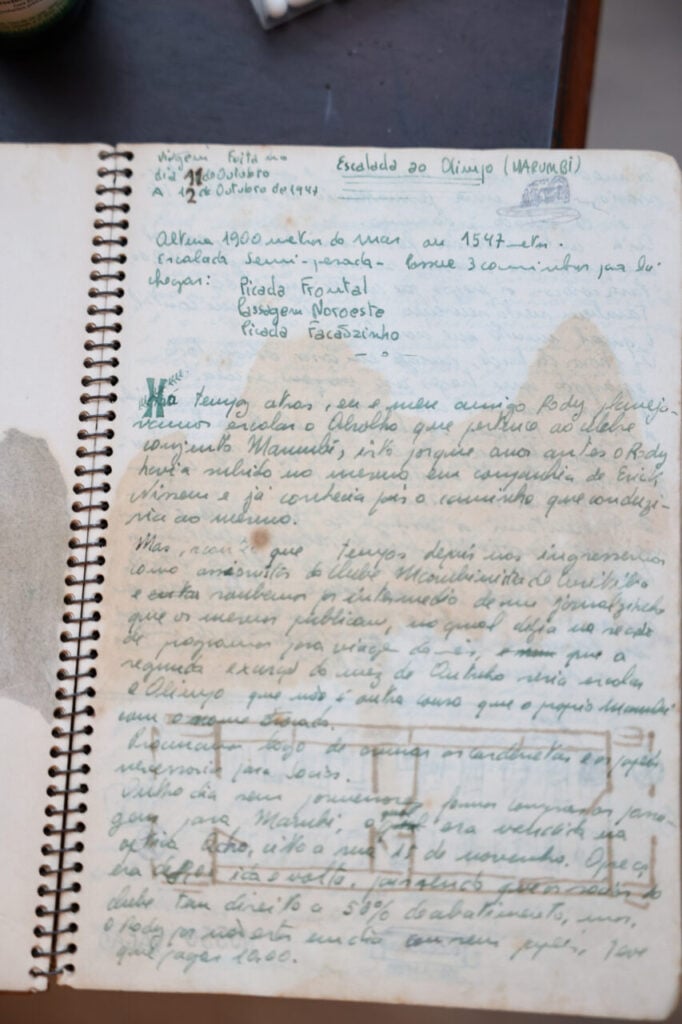 Viagem Feita no
dia 11 de Outubro
A 12 de Outubro de 1947
Escalada ao Olimpo (MARUMBI)
Altura 1900 metros do mar ou 1547 etros.
Escalada Semi-pesada - Possue 3 caminhos para lá
chegar:
Picada Frontal
Passagem Noroeste
Picada Facãozinho
Há tempos atras, eu e meu amigo Rody planeja-
vamos escalar o Abrolho que pertence ao
conjunto Marumbi, isto porque anos antes o Rody
havia subido no mesmo em companhia de Erich
Nissem e já conhecia pois o caminho que conduzi-
ria ao mesmo.
Mas, que tempos depois nos ingressemos
como assionistas do Clube Marumbinista de Curitiba
e soubemos os intermedio de um jornalzinho
que os mesmos publicam, no qual dizia na
de programas para viagem do mês, que a
segunda excursão do mez de Outubro seria escalar
o Olimpo que não é outra cousa que o proprio Marumbi
com o nome
logo de as cardenetas e os papeis
necessarios para socios.
Outro dia sem fomos comprar passa-
gem para Marumbi, a era vendida na
isto a rua 15 de novembro. O preço
era de ida e volta, sendo que os socios do
clube tem direito a 50% de abatimento, mas,
o Rody por não estar em dia com seus papeis, teve
que pagar 10.00.